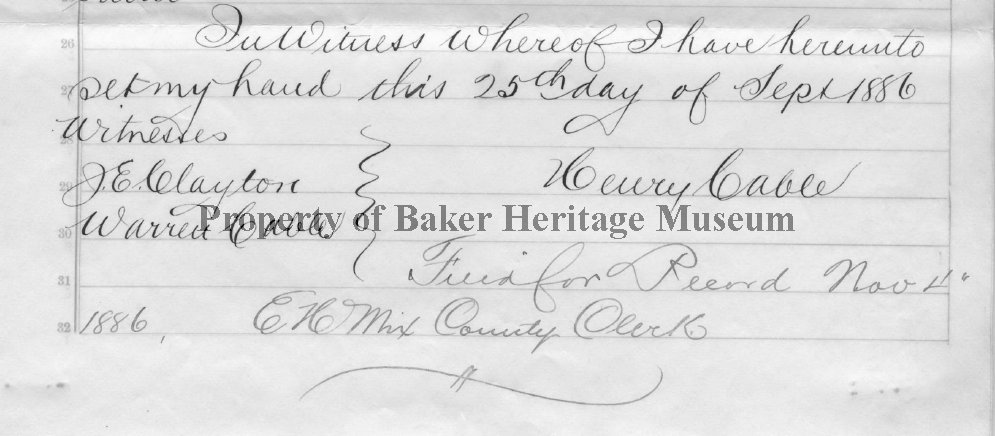 26 In Witness Whereof I have hereunto
27 set my hand this 25th day of Sept 1886
Witnesses
29 J. E. Clayton Henry Cable
30 Warren Cable
Property of Baker Heritage Museum
31 Filed for Record Nov 4"
32 1886, E H Mix County Clerk